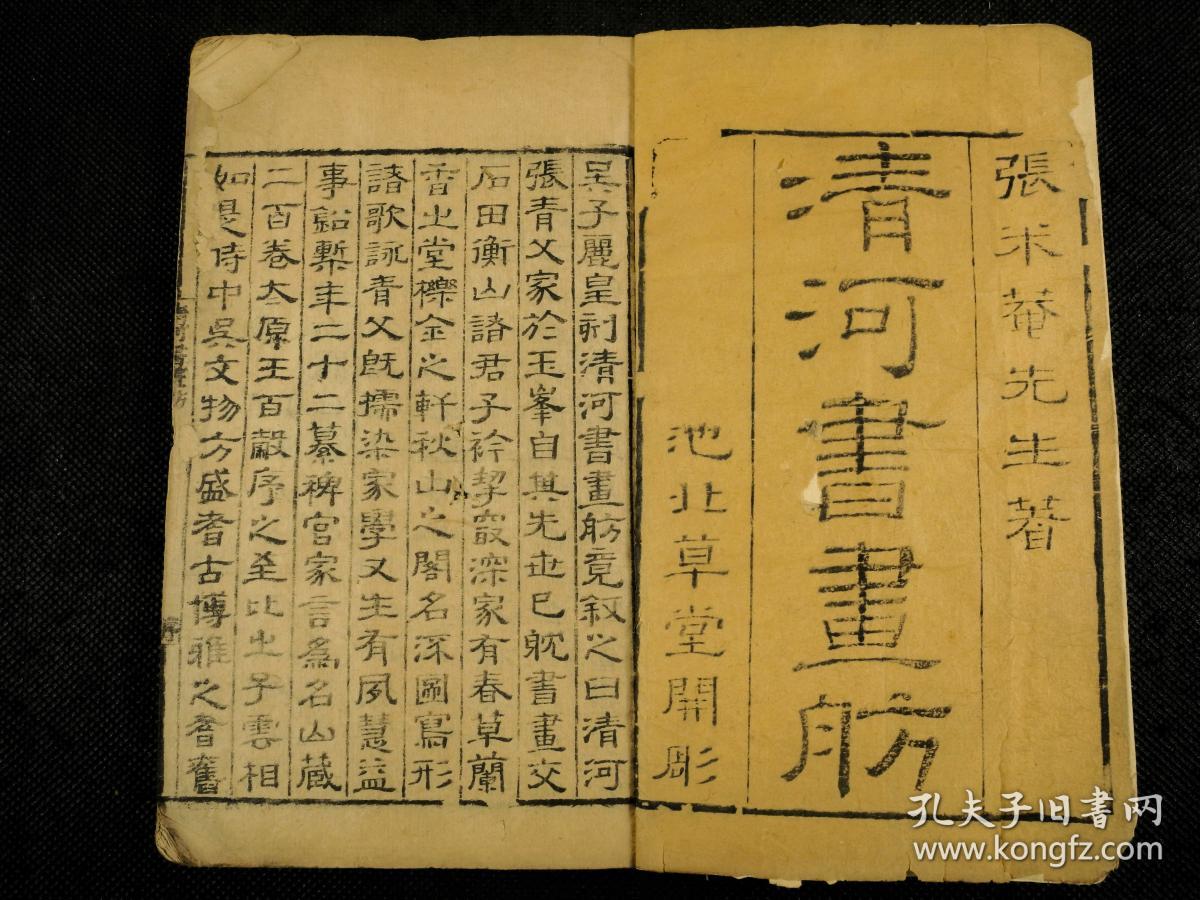 張米菴先生著
清河書畫舫
池北草堂開彫
吴子麗皇刻清河書畫舫竟叙之曰清河
張青父家於玉峯自其先世已躭書畫交
石田衡山諸君子衿契㝡深家有春草蘭
香之堂櫟金之軒秋山之閣名流圖寫形
諸歌詠青父旣擩染家學又生有夙慧益
事鉛槧年二十二纂稗官家言爲名山藏
二百卷太原王百穀序之至比之子雲相
如是時中吳文物方盛耆古博雅之耆舊
孔夫子旧书网
www.kongfz.com